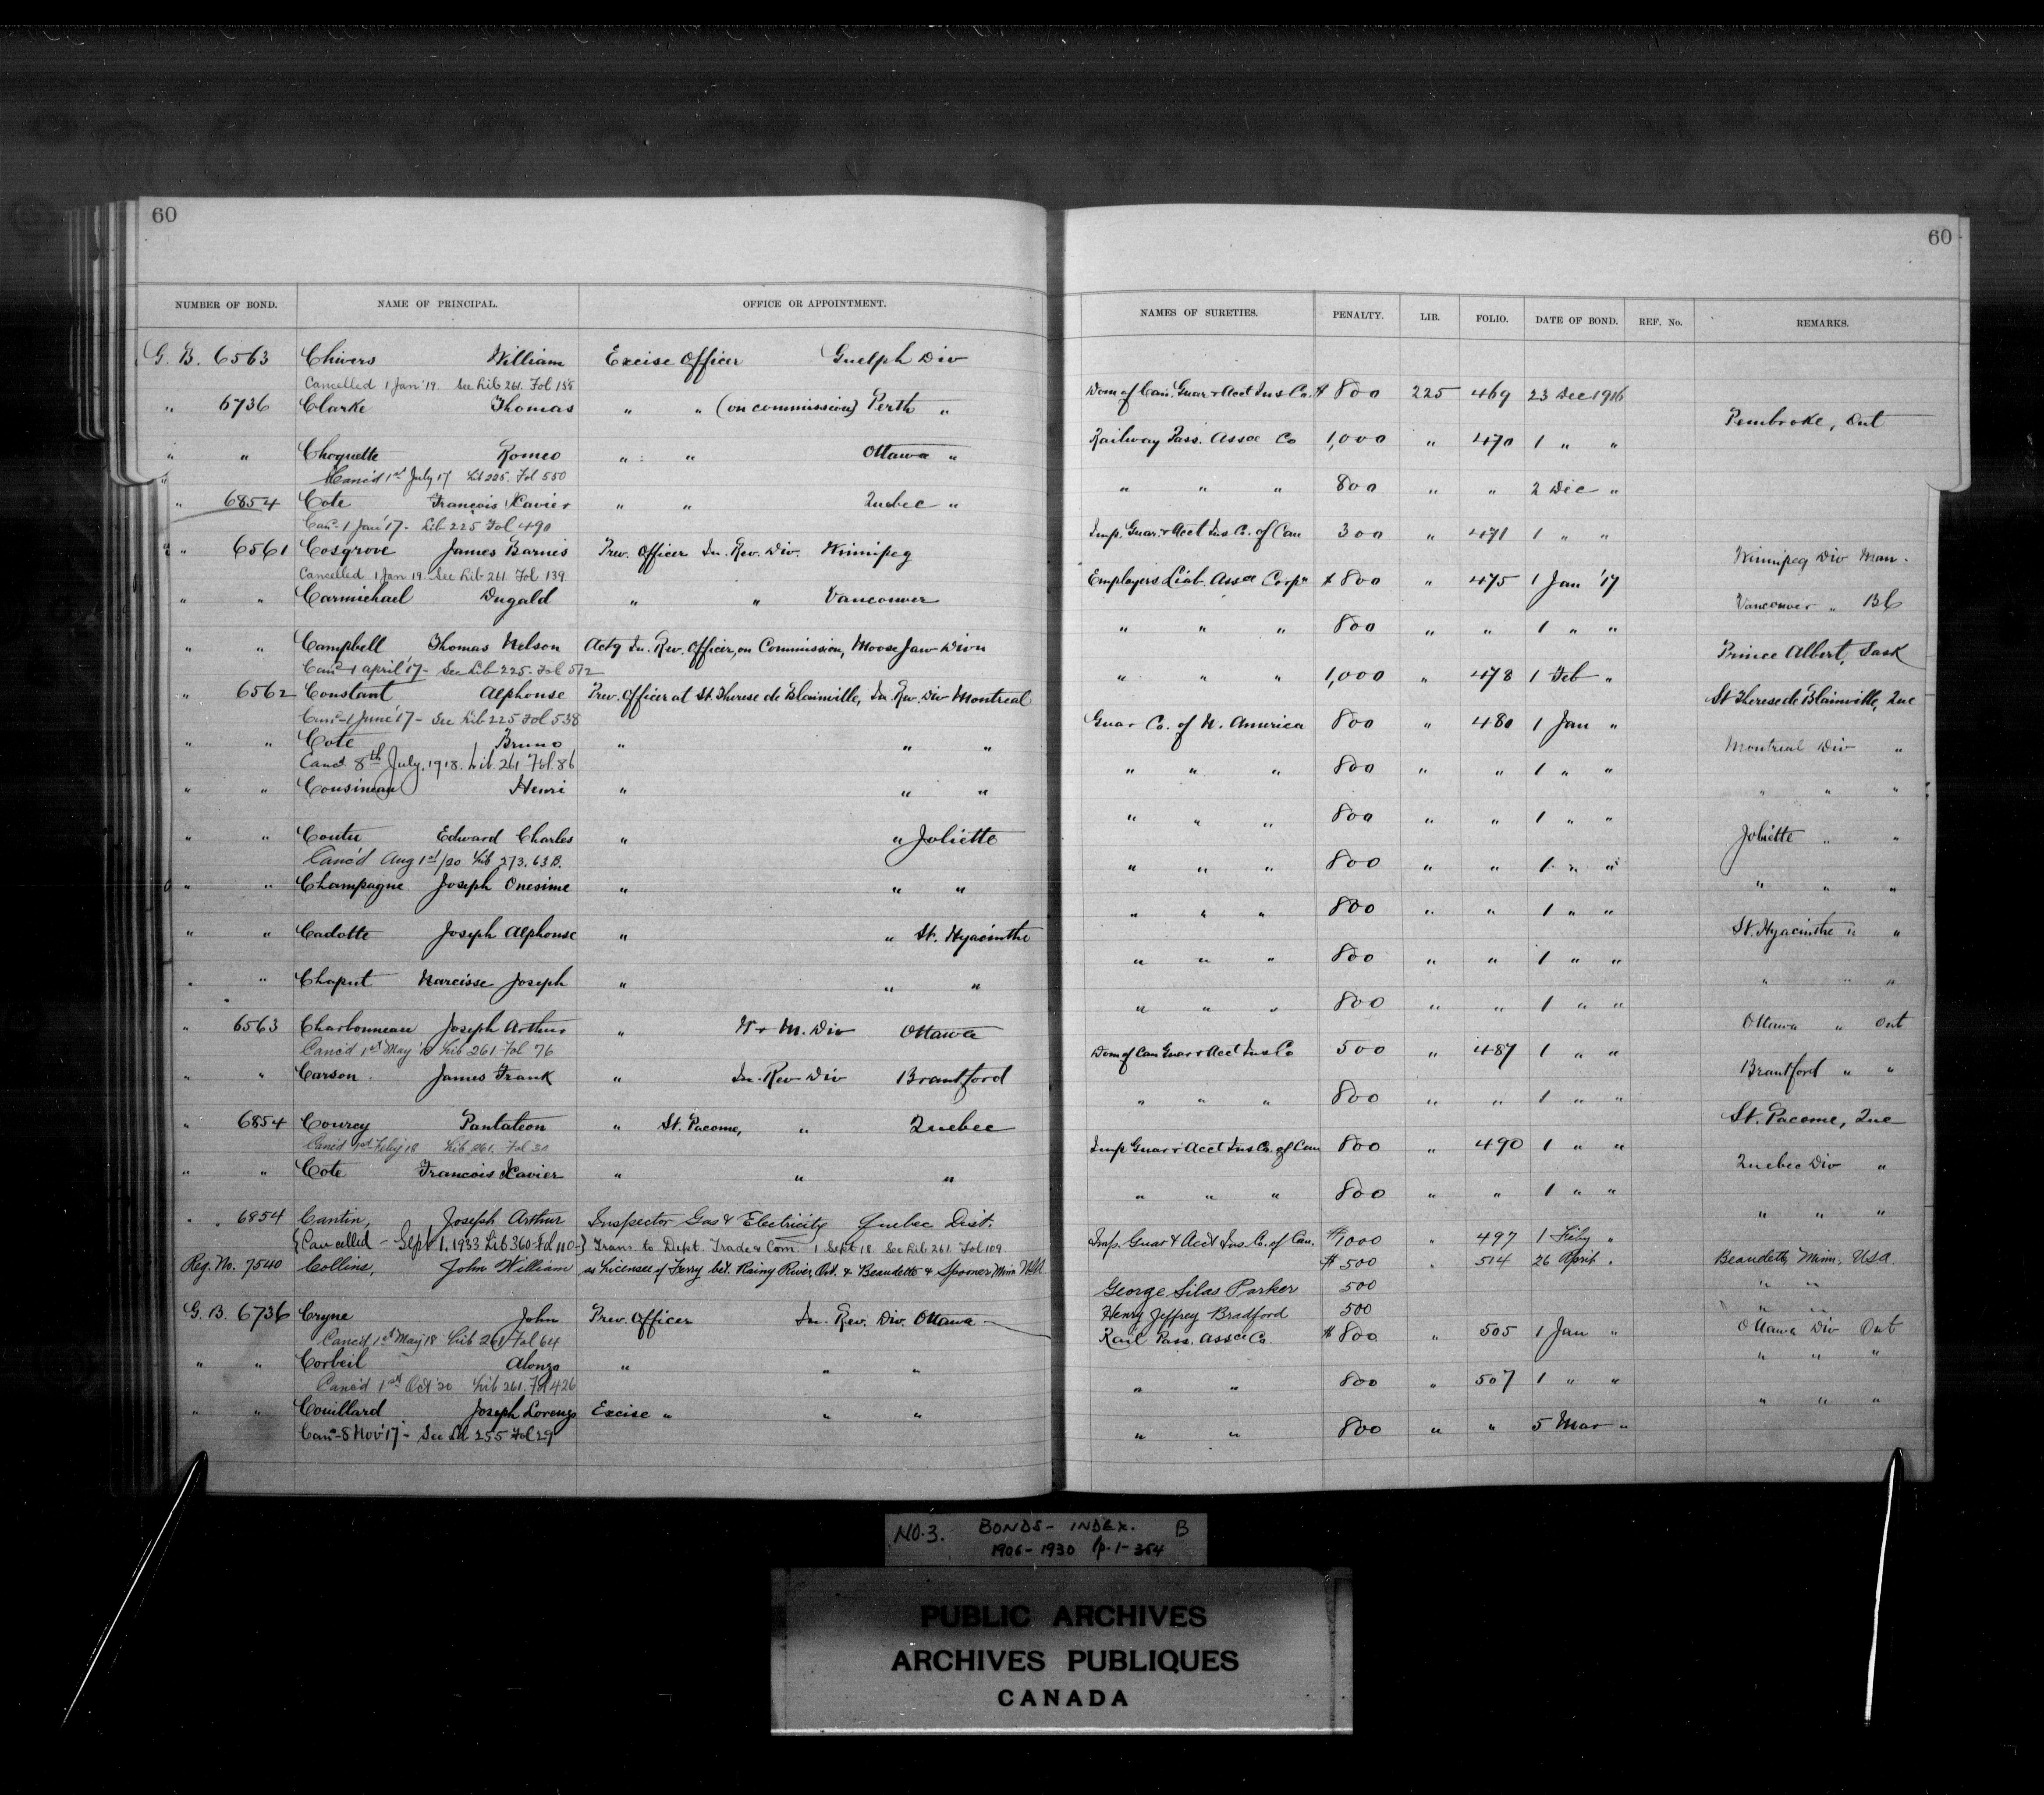 60
NUMBER OF BOND. NAME OF PRINCIPAL. OFFICE OR APPOINTMENT.
G. B. 6563 Chivers William Excise Officer Guelph Div
Cancelled 1 Jan '19. See Lib 261. Fol 138
" 6736 Clarke Thomas " " (on commission) Perth "
" " Choquette Romeo " " Ottawa "
Canc'd 1st July 17 Lib 225. Fol 550
" 6854 Cote Francois Xavier " " Quebec "
Canc- 1 Jan '17 - Lib 225 Fol 490
" 6561 Cosgrove James Barnes Prev. Officer In. Rev. Div. Winnipeg
Cancelled 1 Jan 19. See Lib 261 Fol 139
" " Carmichael Dugald " " Vancouver
" " Campbell Thomas Nelson Actg In. Rev. Officer, on Commission, Moose Jaw Divn
Canc- 1 April '17 - See Lib 225. Fol 572
" 6562 Constant Alphonse Prev. Officer at St. Therese de Blainville, In. Rev. Div Montreal
Canc- 1 June '17 - See Lib 225 Fol 538
" " Cote Bruno " " "
Canc'd 8th July, 1918. Lib. 261 Fol. 86
" " Cousineau Henri " " "
" " Coutu Edward Charles " " Joliette
Canc'd Aug 1st/20 Lib 273. 63 B.
" " Champagne Joseph Onesime " " "
" " Cadotte Joseph Alphonse " " St. Hyacinthe
" " Chaput Narcisse Joseph " " "
" 6563 Charbonneau Joseph Arthur " W & M. Div Ottawa
Canc'd 1st May '18 Lib 261 Fol 76
" " Carson James Frank " In. Rev Div Brantford
" 6854 Courcy Pantaleon " St. Pacome, " Quebec
Canc'd 1st Feby 18 Lib 261. Fol 30
" " Cote Francois Xavier " " "
" " 6854 Cantin, Joseph Arthur Inspector Gas & Electricity Quebec Dist.
{Cancelled - Sept 1. 1933 Lib 360 Fol 110-} Trans. to Dept. Trade & Com. 1 Sept 18 See Lib 261 Fol 109
Reg. No. 7540 Collins, John William as Licensee of Ferry bet. Rainy River, Ont. & Beaudette & Spooner, Minn USA
G. B. 6736 Cryne John Prev. Officer In. Rev. Div. Ottawa
Canc'd 1st May 18 Lib 261 Fol 64
" " Corbeil Alonzo " " "
Canc'd 1st Oct 20 Lib 261. Fol 426
" " Couillard Joseph Lorenzo Excise " " "
Canc- 8 Nov '17 - See Lib 255 Fol 29
60
NAMES OF SURETIES. PENALTY. LIB. FOLIO. DATE OF BOND. REF. No. REMARKS.
Dom of Can. Guar & Acct Ins Co. $ 800 225 469 23 Dec 1916
Pembroke, Ont
Railway Pass. Assce Co 1,000 " 470 1 " "
" " " 800 " " 2 Dec "
Imp. Guar. & Acct Ins Co. of Can 300 " 471 1 " "
Winnipeg Div Man.
Employers Liab. Assce Corpn $ 800 " 475 1 Jan '17
Vancouver " BC
" " " 800 " " 1 " "
Prince Albert, Sask
" " " 1,000 " 478 1 Feb "
St Therese de Blainville, Que
Guar Co. of N. America 800 " 480 1 Jan "
Montreal Div "
" " " 800 " " 1 " "
" " "
" " " 800 " " 1 " "
Joliette " "
" " " 800 " " 1 " "
" " "
" " " 800 " " 1 " "
St. Hyacinthe " "
" " " 800 " " 1 " "
" " "
" " " 800 " " 1 " "
Ottawa " Ont
Dom of Can Guar & Acct Ins Co 500 " 487 1 " "
Brantford " "
" " " 800 " " 1 " "
St. Pacome, Que
Imp Guar & Acct Ins Co. of Can 800 " 490 1 " "
Quebec Div "
" " " 800 " " 1 " "
" " "
Imp. Guar & Acct Ins. Co. of Can. $1000 " 497 1 Feby "
$ 500 " 514 26 April " Beaudette, Minn, USA.
George Silas Parker 500 " "
Henry Jeffrey Bradford 500 " "
Rail Pass. Assce Co. $ 800 " 505 1 Jan " Ottawa Div Ont
" " "
" " 800 " 507 1 " "
" " "
" " 800 " " 5 Mar "
NO. 3. BONDS - INDEX. B
1906 - 1930 p. 1 - 364
PUBLIC ARCHIVES
ARCHIVES PUBLIQUES
CANADA